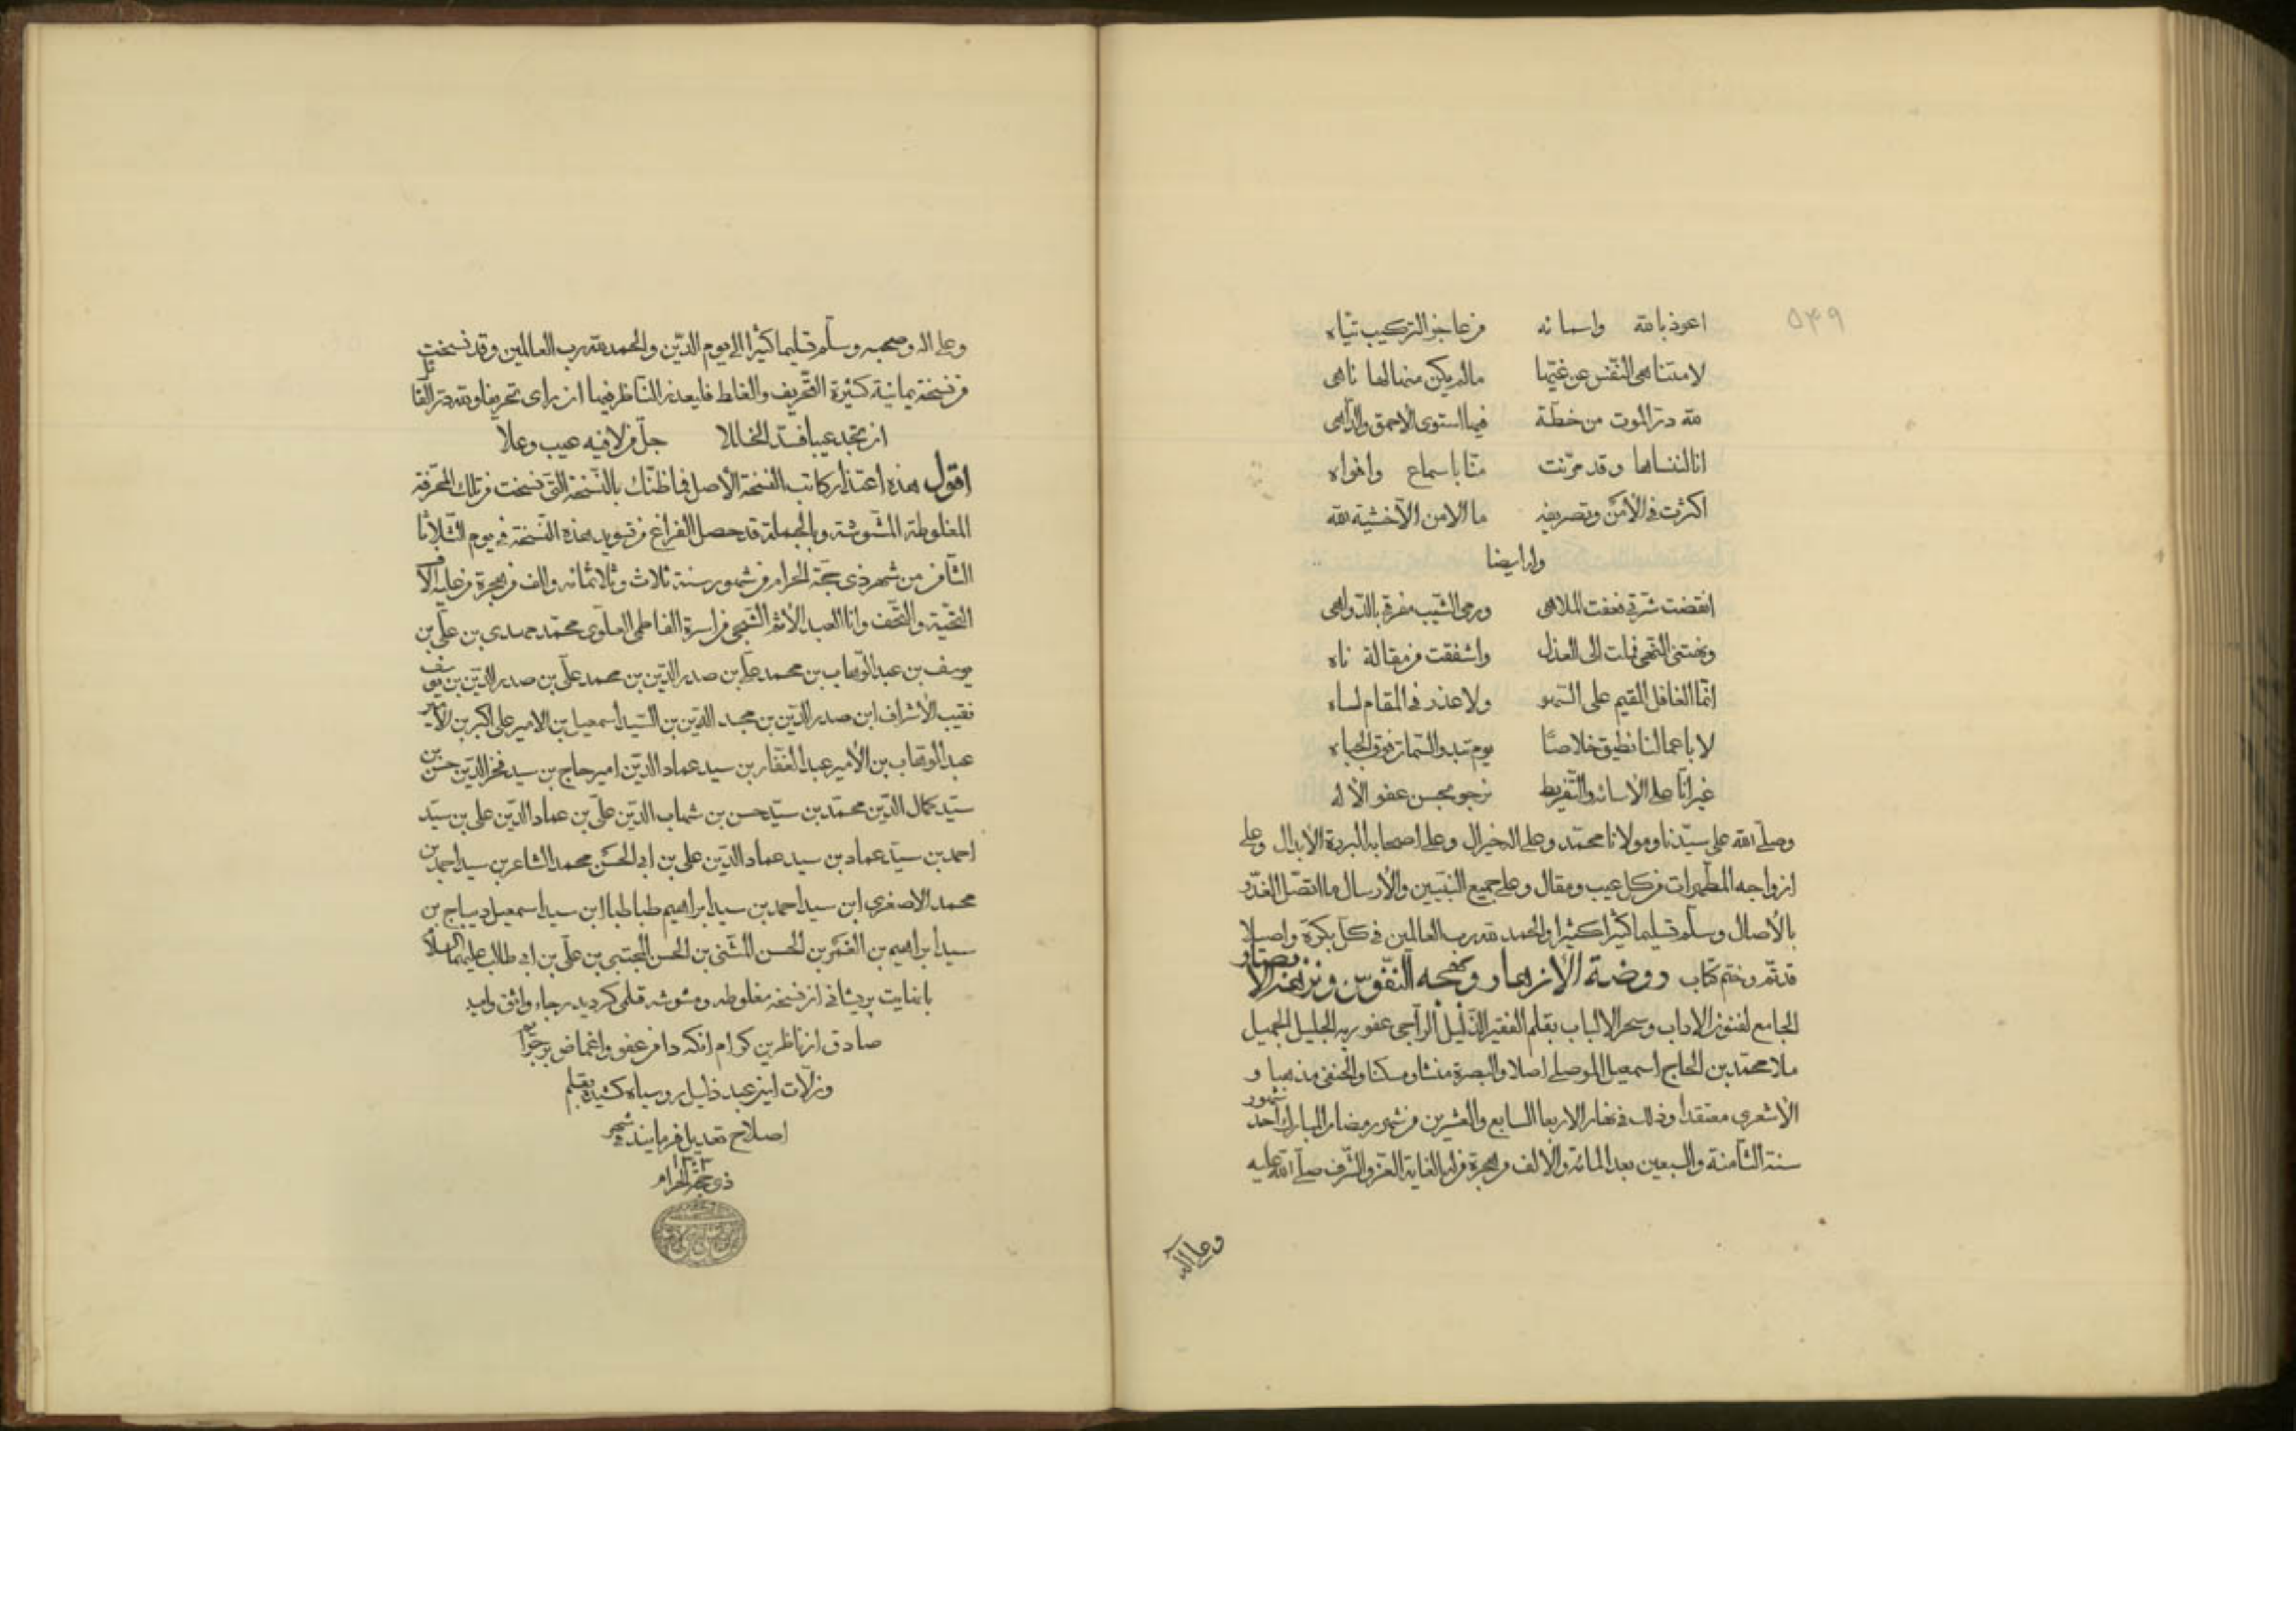 ٥٤٩
اعوذ بالله واسمائه من عاجز التركيب تياه
لا متناهى النفس عن غيها ما لم يكن منها لها ناهى
لله در الموت من خطة فيها استوى الاحمق والداهى
انا لننساها وقد مرنت منا باسماع وافواه
اكثرت فى الأمن وتصريفه ما الامن الا خشية الله
وله ايضا
انقضت شرتى فعفت الملاهى ورمى الشيب مفرقى بالدواهى
ونهتنى النهى فملت الى العذل واشفقت من مقالة ناه
انما الغافل المقيم على السهو ولا عذر فى المقام لساه
لا باعمالنا نطيق خلاصا يوم تبدو السمات فوق الجباه
غير انا على الأسائة والتفريط نرجو حسن عفو الأله
وصلى الله على سيدنا ومولانا محمد وعلى اله خير ال وعلى اصحابه البررة الأبدال وعلى
ازواجه المطهرات من كل عيب ومقال وعلى جميع النبيين والأرسال ما اتصل الغدو
بالأصال وسلم تسليما كثيرا كثيرا والحمد لله رب العالمين فى كل بكرة واصيلا
قد تم وختم كتاب روضة الأزهار وبهجة النفوس ونزهة الأبصار و
الجامع لفنون الاداب وسحر الالباب بقلم الفقير الذليل الراجى عفو ربه الجليل الجميل
ملا محمد بن الحاج اسمعيل الموصلى اصلا والبصرة منشا ومسكنا والحنفى مذهبا و
الأشعرى معتقدا وذلك فى نهار الاربعا السابع والعشرين من شهور رمضان المبارك احد شهور
سنة الثامنة والسبعين بعد المائة والالف من هجرة من له الغاية العز والشرف صلى الله عليه
وعلى اله
وعلى اله وصحبه وسلم تسليما كثيرا الى يوم الدين والحمد لله رب العالمين وقد نسخت
من نسخة يمانية كثيرة التحريف والغلط فليعذر الناظر فيها ان راى تحريفا ولله در القائل
ان تجد عيبا فسد الخللا جل من لا فيه عيب وعلا
اقول هذه اعتذار كاتب النسخة الأصل فما ظنك بالنسخة التى نسخت من تلك المحرفة
المغلوطة المشوشة وبالجملة قد حصل الفراغ من تسويد هذه النسخة فى يوم الثلاثا
الثامن من شهر ذى حجة الحرام من شهور سنة ثلاث وثلاثمائه والف من هجرة من عليه الاف
التحية والتحف وانا العبد الأثم الشجى من اسرة الفاطمى العلوى محمد مهدى بن على بن
يوسف بن عبدالوهاب بن محمد على بن صدر الدين بن محمد على بن صدر الدين بن يوسف
نقيب الأشراف ابن صدر الدين بن مجد الدين بن السيد اسمعيل بن الامير على اكبر بن الأمير
عبدالوهاب بن الأمير عبدالغفار بن سيد عماد الدين امير حاج بن سيد فخر الدين حسن بن
سيد كمال الدين محمد بن سيد حسن بن شهاب الدين على بن عماد الدين على بن سيد
احمد بن سيد عماد بن سيد عماد الدين على بن ابى الحسن محمد الشاعر بن سيد احمد بن
محمد الاصغرى ابن سيد احمد بن سيد ابراهيم طباطبا ابن سيد اسمعيل ديباج بن
سيد ابراهيم بن الغمر بن الحسن المثنى بن الحسن المجتبى بن على بن ابى طالب عليهما السلام
با نهايت پريشانى از نسخه مغلوطه ومشوشه قلمى گرديد رجاء واثق واميد
صادق از ناظرين كرام انكه دامن عفو واغماض بر جرايم
وزلات اين عبد ذليل روسياه كشيده بقلم
اصلاح تعديل فرمايند فى شهر
ذى حجة الحرام ١٣٠٣